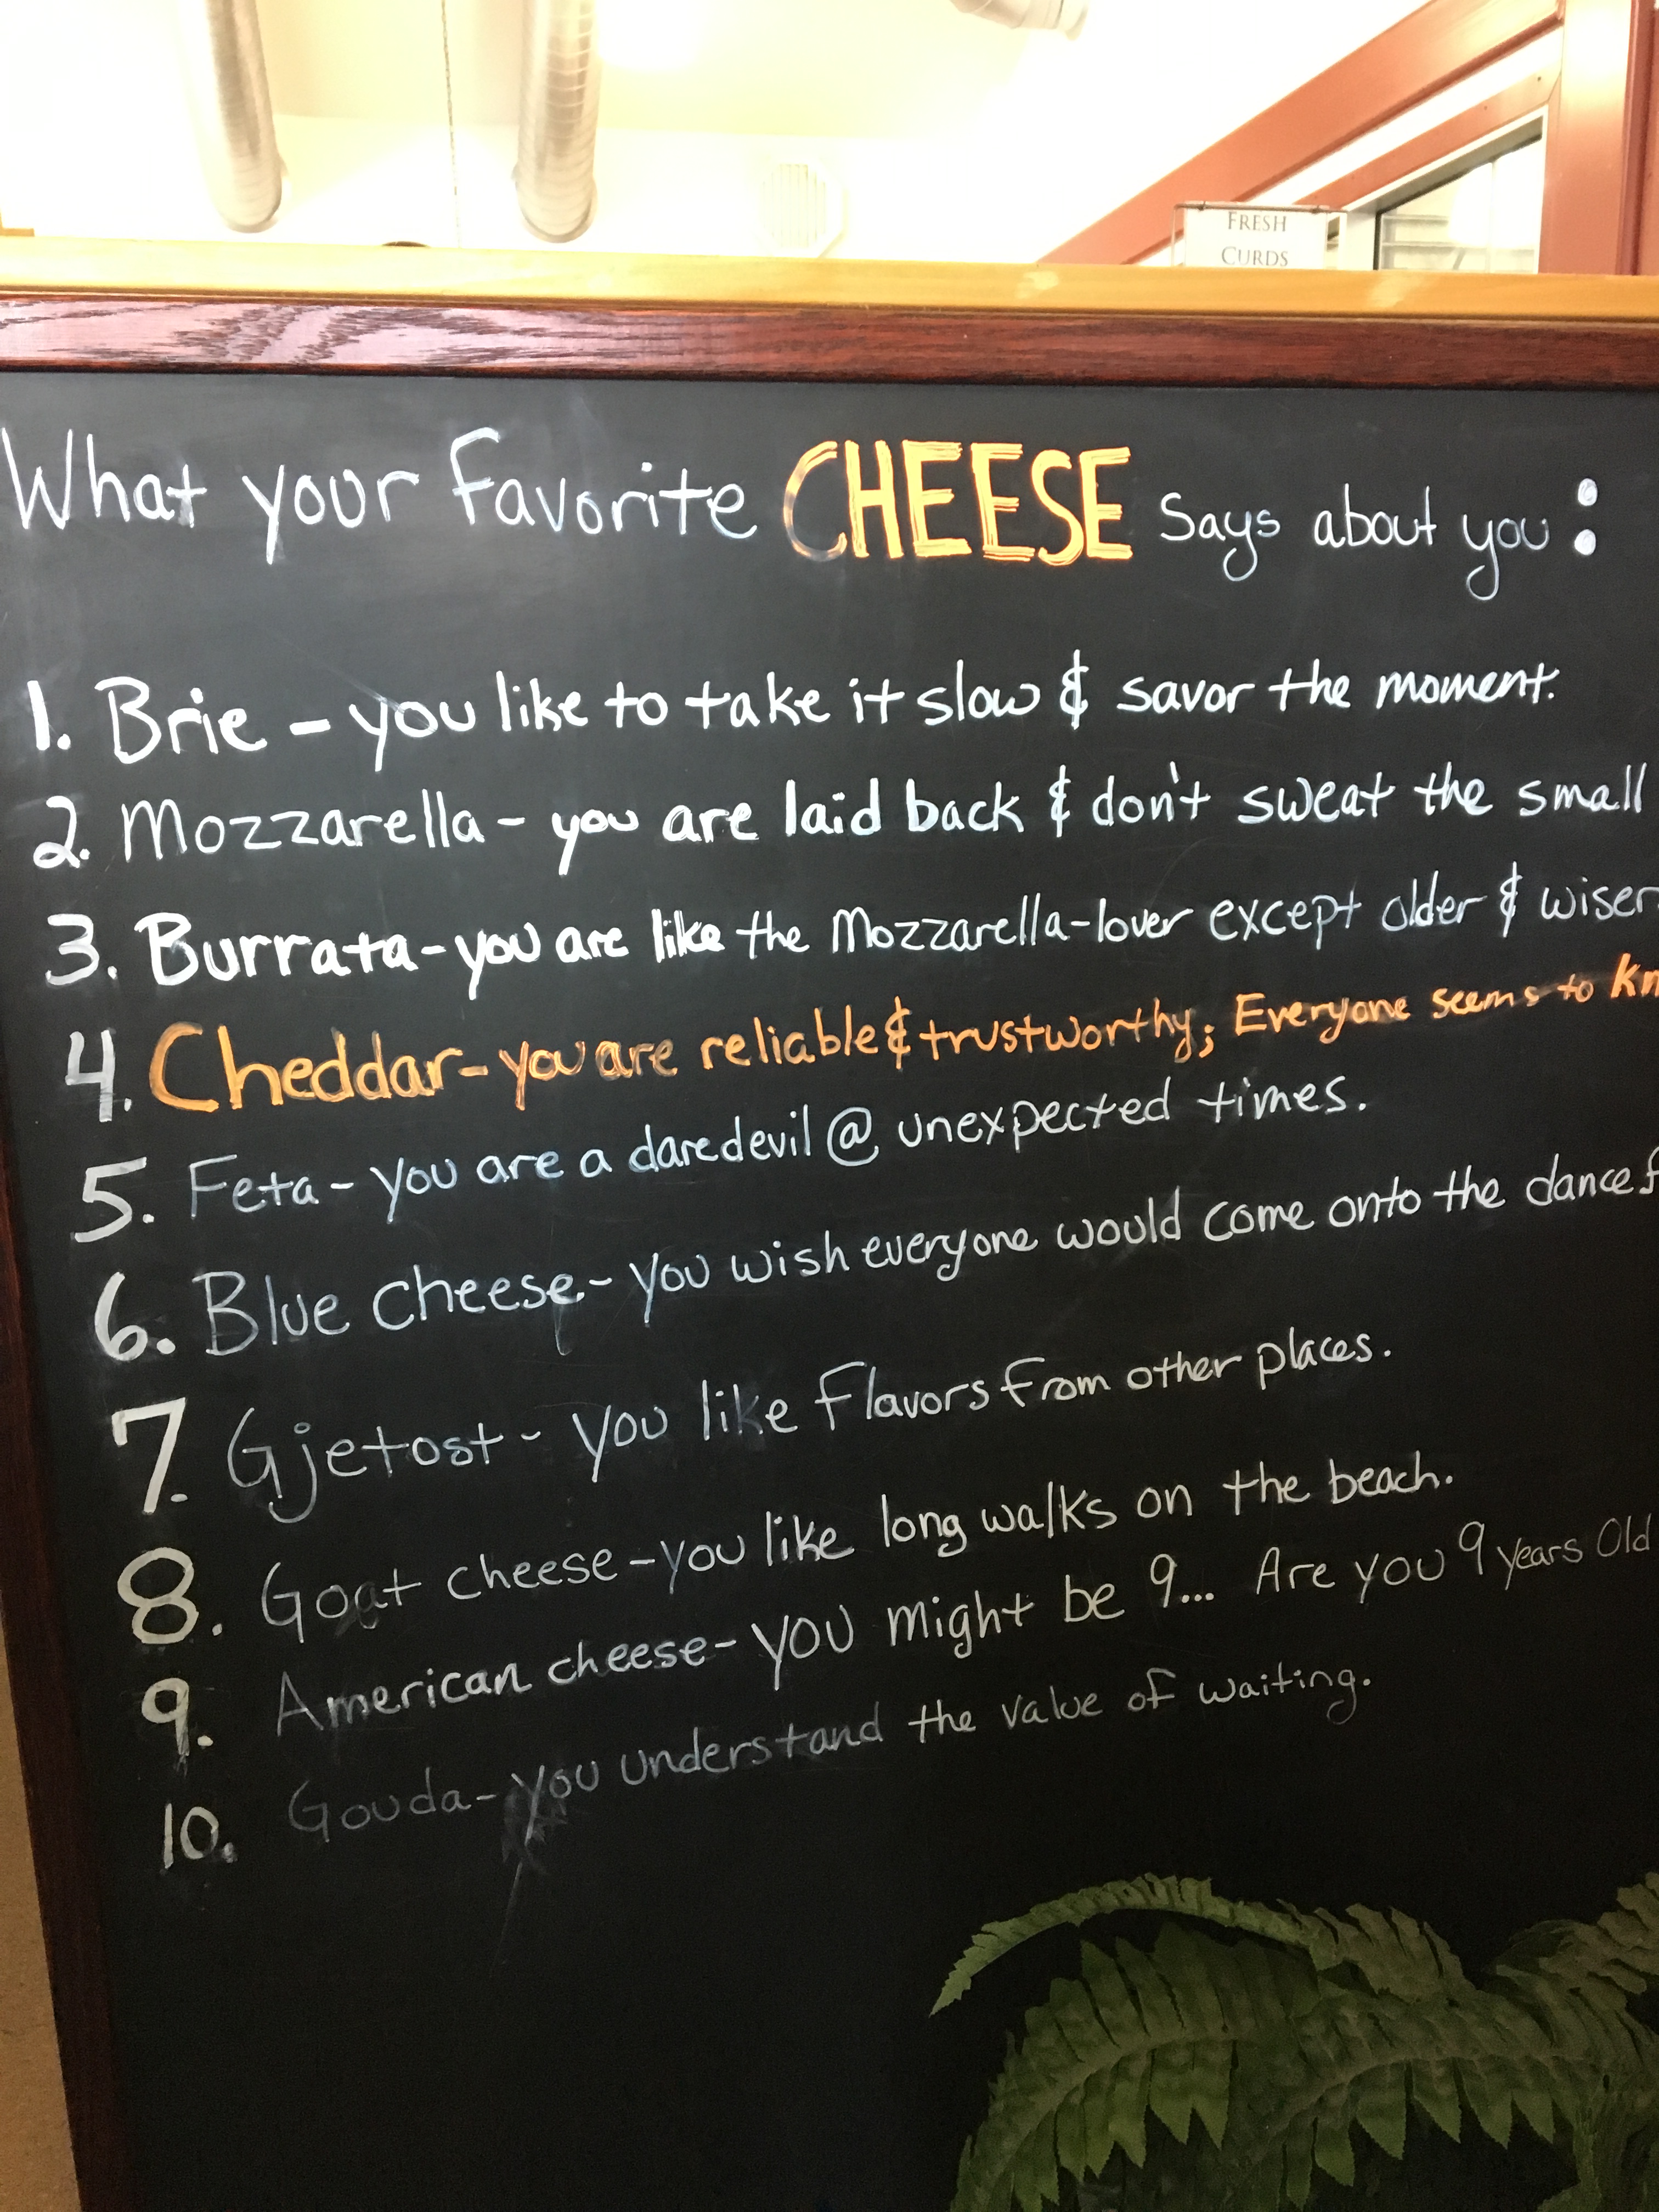 FRESH
CURDS
What your favorite CHEESE says about you:
1. Brie - you like to take it slow & savor the moment.
2. Mozzarella - you are laid back & don't sweat the small
3. Burrata - you are like the Mozzarella-lover except older & wiser.
4. Cheddar - you are reliable & trustworthy; Everyone seems to kn
5. Feta - you are a daredevil @ unexpected times.
6. Blue cheese - you wish everyone would come onto the dancef
7. Gjetost - you like flavors from other places.
8. Goat cheese - you like long walks on the beach.
9. American cheese - you might be 9... Are you 9 years old
10. Gouda - you understand the value of waiting.